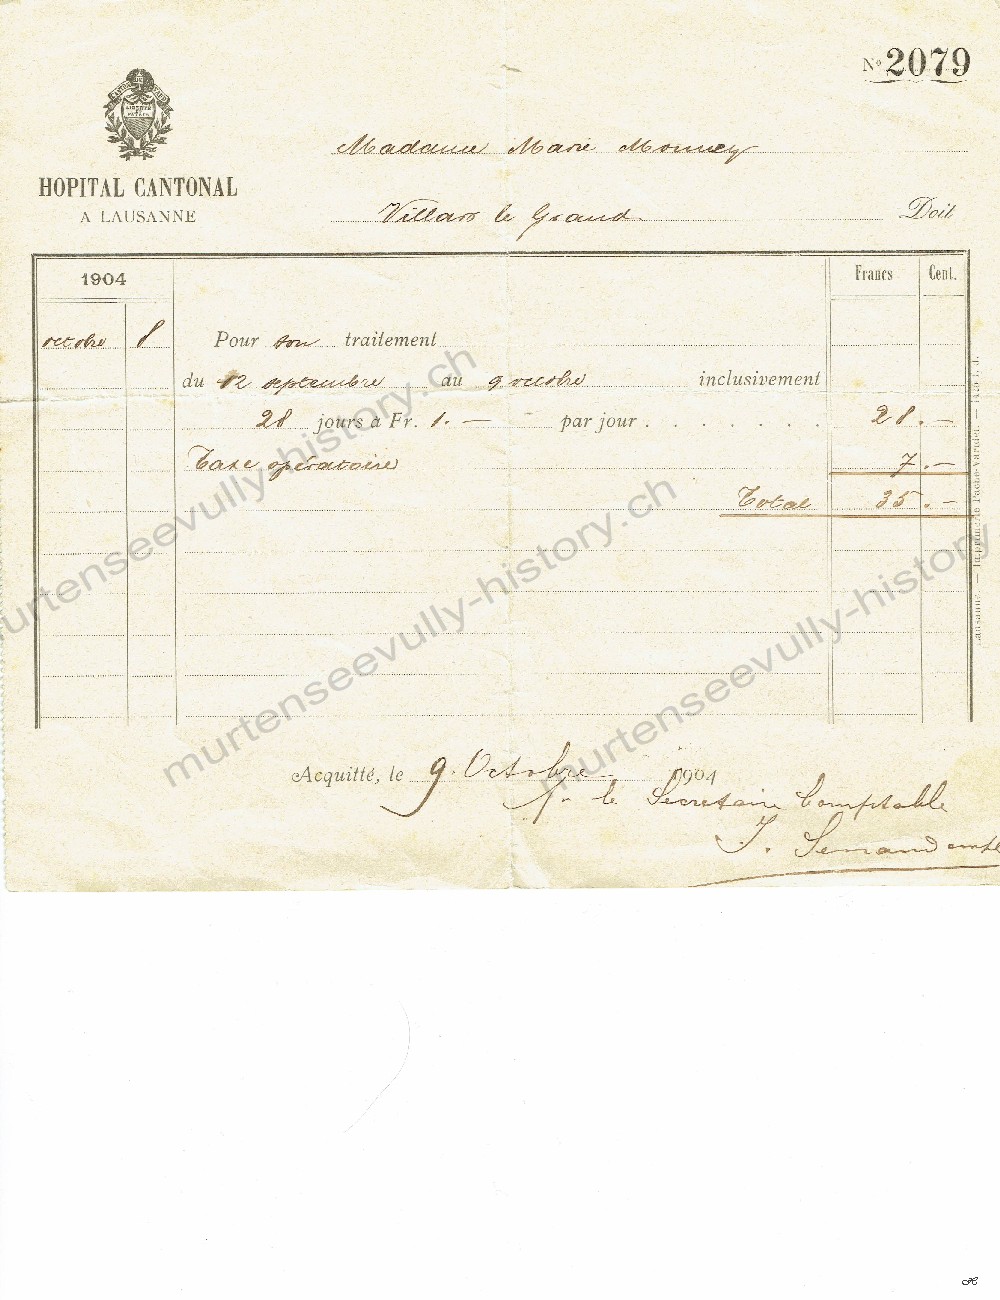 No 2079
LIBERTÉ
ET
PATRIE
HOPITAL CANTONAL
A LAUSANNE
Madame Marie Monney
Villars le Grand Doit
1904 Francs Cent.
octobre 8 Pour son traitement
du 12 septembre au 9 octobre inclusivement
28 jours à Fr. 1.— par jour . . . . . . . 28.—
Taxe opératoire 7.—
Total 35.—
Lausanne. — Imprimerie Pache-Varidel. —
Acquitté, le 9. Octobre 1904
le Secrétaire Comptable
J.
murtenseevully-history.ch
murtenseevully-history.ch
murtenseevully-history
H